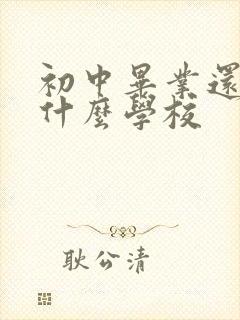 初中畢業還
什麼學校
耿公清